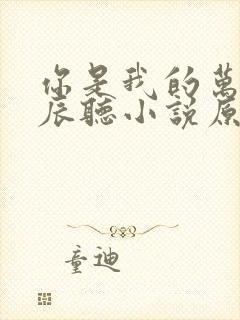 你是我的萬
辰聽小說原
童迪